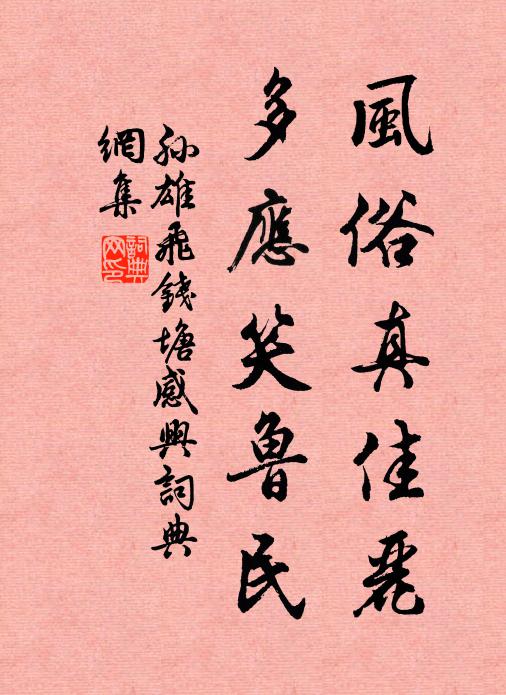 風俗真佳麗
多應笑魯民
孫雄飛錢塘感興詞典
網集
詞典
网印